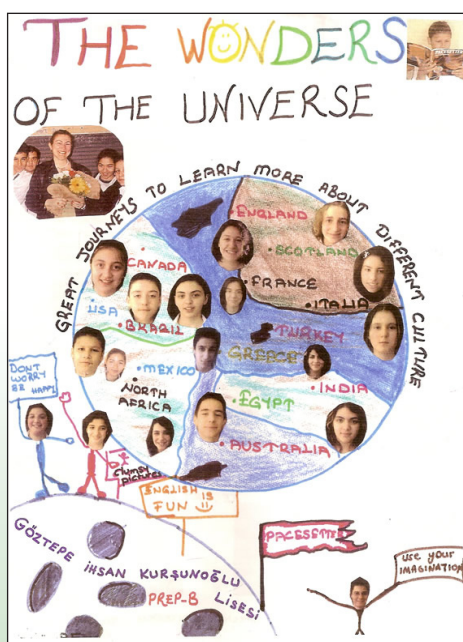 THE WONDERS
OF THE UNIVERSE
GREAT JOURNEYS TO LEARN MORE ABOUT DIFFERENT CULTURE
ENGLAND
SCOTLAND
CANADA
FRANCE
ITALIA
USA
BRASIL
TURKEY
GREECE
MEXICO
INDIA
NORTH
AFRICA
EGYPT
AUSTRALIA
DONT
WORRY
BE HAPPY
CLUMSY
PICTURES
ENGLISH IS
FUN
PACESETTER
USE YOUR
IMAGINATION
GÖZTEPE İHSAN KURŞUNOĞLU LİSESİ
PREP-B